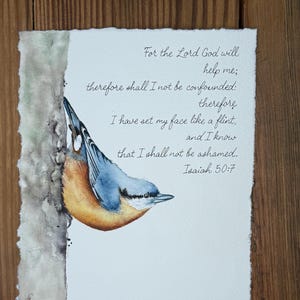 For the Lord God will
help me;
therefore shall I not be confounded:
therefore
I have set my face like a flint,
and I know
that I shall not be ashamed.
Isaiah 50:7